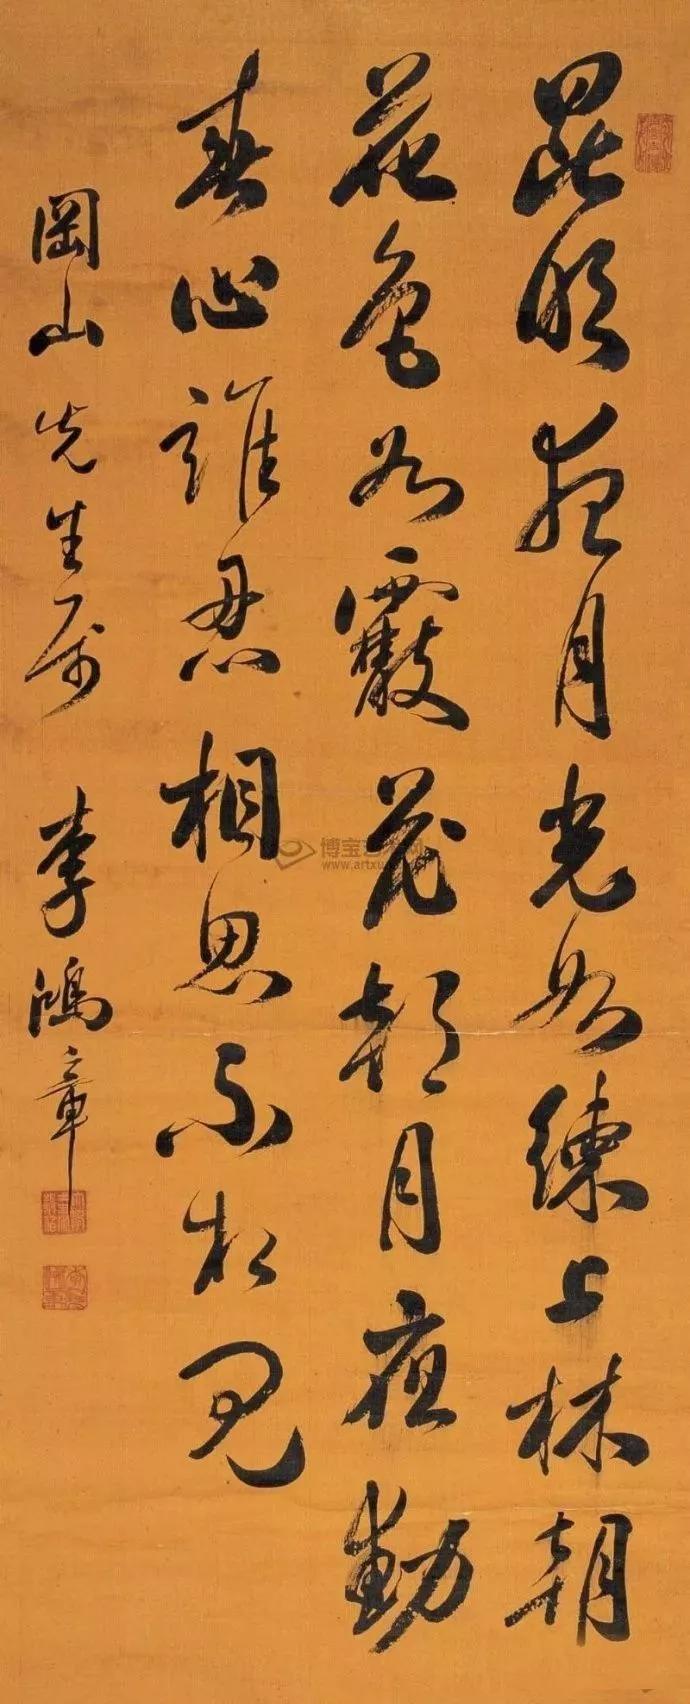 昆明夜月光如練上林朝
花色如霰花朝月夜動
春心誰忍相思不相見
岡山先生属 李鴻章
博宝艺术网
www.artxun.com